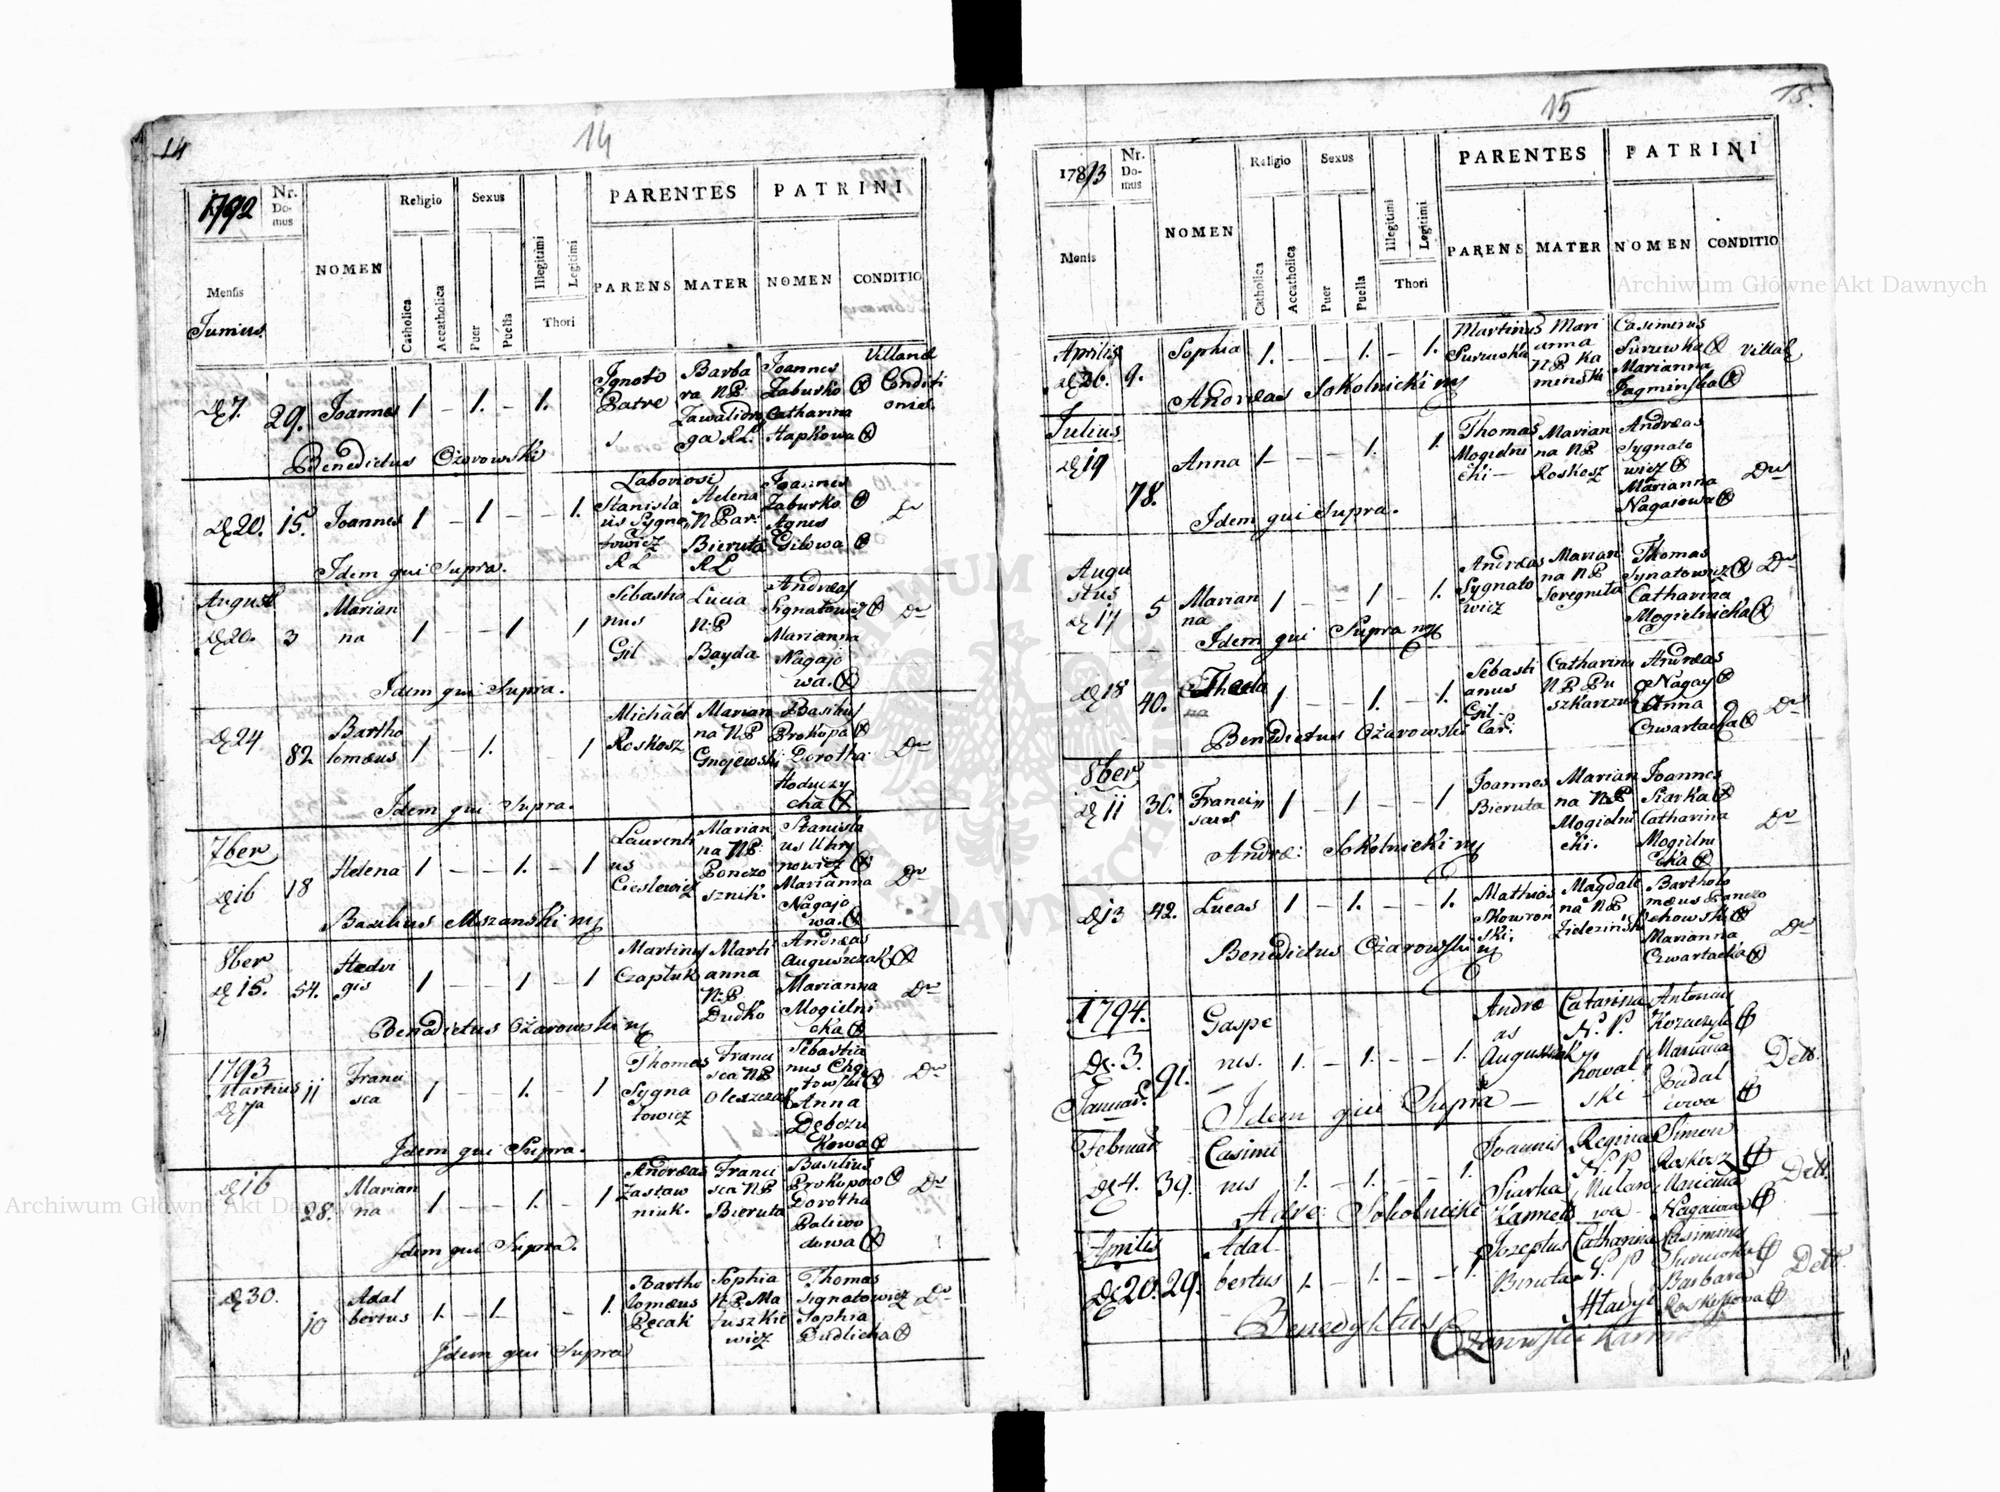 14
14
1792
Nr. Domus
NOMEN
Religio
Sexus
PARENTES
PATRINI
Mensis
Junius.
Catholica
Accatholica
Puer
Puella
Illegitimi
Legitimi
Thori
PARENS
MATER
NOMEN
CONDITIO
D 7. 29. Joannes 1 – 1. – 1.
Ignoto
Patre
Barba
ra NP:
Zawalidro
ga RL.
Joannes
Zaburko
Catharina
Hapkowa
Villanæ
Conditi
onis.
Benedictus Ożarowski
D 20. 15. Joannes 1 – 1 – – 1.
Laboriosi
Stanisla
us Sygna
towicz
RL
Helena
NPar:
Bieruta
RL
Joannes
Zaburko
Agnes
Gilowa
Dº
Idem qui Supra.
August
D 20. 3 Marian
na 1 – – 1 1
Sebastia
nus
Gil
Lucia
N:P
Bayda
Andreas
Signatowicz
Marianna
Nagajo
wa.
Dº
Idem qui Supra.
D 24 82 Bartho
lomæus 1 – 1. 1
Michaël
Roskosz
Marian
na NP
Gnojewski
Basilius
Prokopa
Dorotha
Hoduczy
cha
Dº
Idem qui Supra.
7ber
D 16 18 Helena 1 – – 1. – 1
Laurenti
us
Cieslewicz
Marian
na NP:
Ponczo
sznik.
Stanisla
us Uhry
nowicz
Marianna
Nagajo
wa.
Dº
Basilius Mszanski mp
8ber
D 15. 54. Hedvi
gis 1 – – 1 – 1
Martinus
Czapluk
Marti
anna
N:P
Dudko
Andreas
Auguszczak
Marianna
Mogielni
cka
Dº
Benedictus Ożarowski mp
1793
Martius
D 7ª 11 Franci
sca 1 – – 1. – 1
Thomas
Sygna
towicz
Franci
sca NP
Oleszczak
Sebastia
nus
Anna
Dębozu
kowa
Dº
Idem qui Supra.
D 16 28. Marian
na 1 – – 1. – 1
Andreas
Zastaw
niuk.
Franci
sca NP
Bieruta
Basilius
Prokopow
Dorotha
Paliwo
dowa
Dº
Idem qui Supra.
D 30. 10 Adal
bertus 1. – 1. – 1.
Bartho
lomæus
Pęcak
Sophia
N:P. Ma
tuszkie
wicz
Thomas
Signatowicz
Sophia
Dudlicha
Dº
Idem qui Supra
15
15.
1793
Nr. Domus
NOMEN
Religio
Sexus
PARENTES
PATRINI
Mensis
Catholica
Accatholica
Puer
Puella
Illegitimi
Legitimi
Thori
PARENS
MATER
NOMEN
CONDITIO
Aprilis
D 26. 9. Sophia 1. – – 1. – 1.
Martinus
Surowka
Mari
anna
NP Ka
minski
Casimirus
Surowka
Marianna
Jagminska
Villan
Andreas Sokolnicki mp
Julius
D 19 78. Anna 1 – – 1. 1.
Thomas
Mogielni
cki –
Marian
na NP
Roskosz
Andreas
Sygnato
wicz
Marianna
Nagaiowa
Dº
Idem qui Supra.
Augu
stus
D 17 5 Marian
na 1 – – 1 – 1.
Andreas
Sygnato
wicz
Marian
na NP
Seregnita
Thomas
Synatowicz
Catharina
Mogielnicka
Dº
Idem qui Supra mp
D 18 40. Thecla 1 – – 1. – 1.
Sebasti
anus
Gil
Car:
Catharina
N P Pu
szkarczuk
Andreas
Nagay
Anna
Czwartacka
Dº
Benedictus Ożarowski
8ber
D 11 30. Franci
scus 1 – 1 – – 1
Joannes
Bieruta
Marian
na NP
Mogielni
cki.
Joannes
Siarka
Catharina
Mogielni
cka
Dº
Andre: Sokolnicki mp
D 13 42. Lucas 1 – 1. – – 1.
Mathias
Skowron
ski.
Magdale
na NP
Zielezinski
Bartholo
mæus Panczo
chowski
Marianna
Czwartacka
Dº
Benedictus Ożarowski mp
1794.
D. 3.
Januar. 91. Gaspe
rus. 1. – 1. – – 1.
Andre
as
Auguszcak
Catarina
N. P.
Kowal
ski
Antonius
Kozaczyk
Mariana
Pudal
owa
Dett.
Idem qui Supra –
Februar
D 4. 39. Casimi
rus 1. – 1. – – 1.
Joannis
Siarka
Regina
N. P
Simon
Roskosz
Nagaiowa
Dett.
Adre: Sokolnicki
Aprilis
D 20. 29. Adal
bertus 1. – 1. – – 1.
Jozephus
Biruta
Catharina
N. P
Hladys
Casimirus
Surowka
Barbara
Roskoszowa
Dett.
Benedyktus Ozarowski
Archiwum Główne Akt Dawnych
Archiwum Główne Akt Dawnych
ARCHIWUM GŁÓWNE AKT DAWNYCH